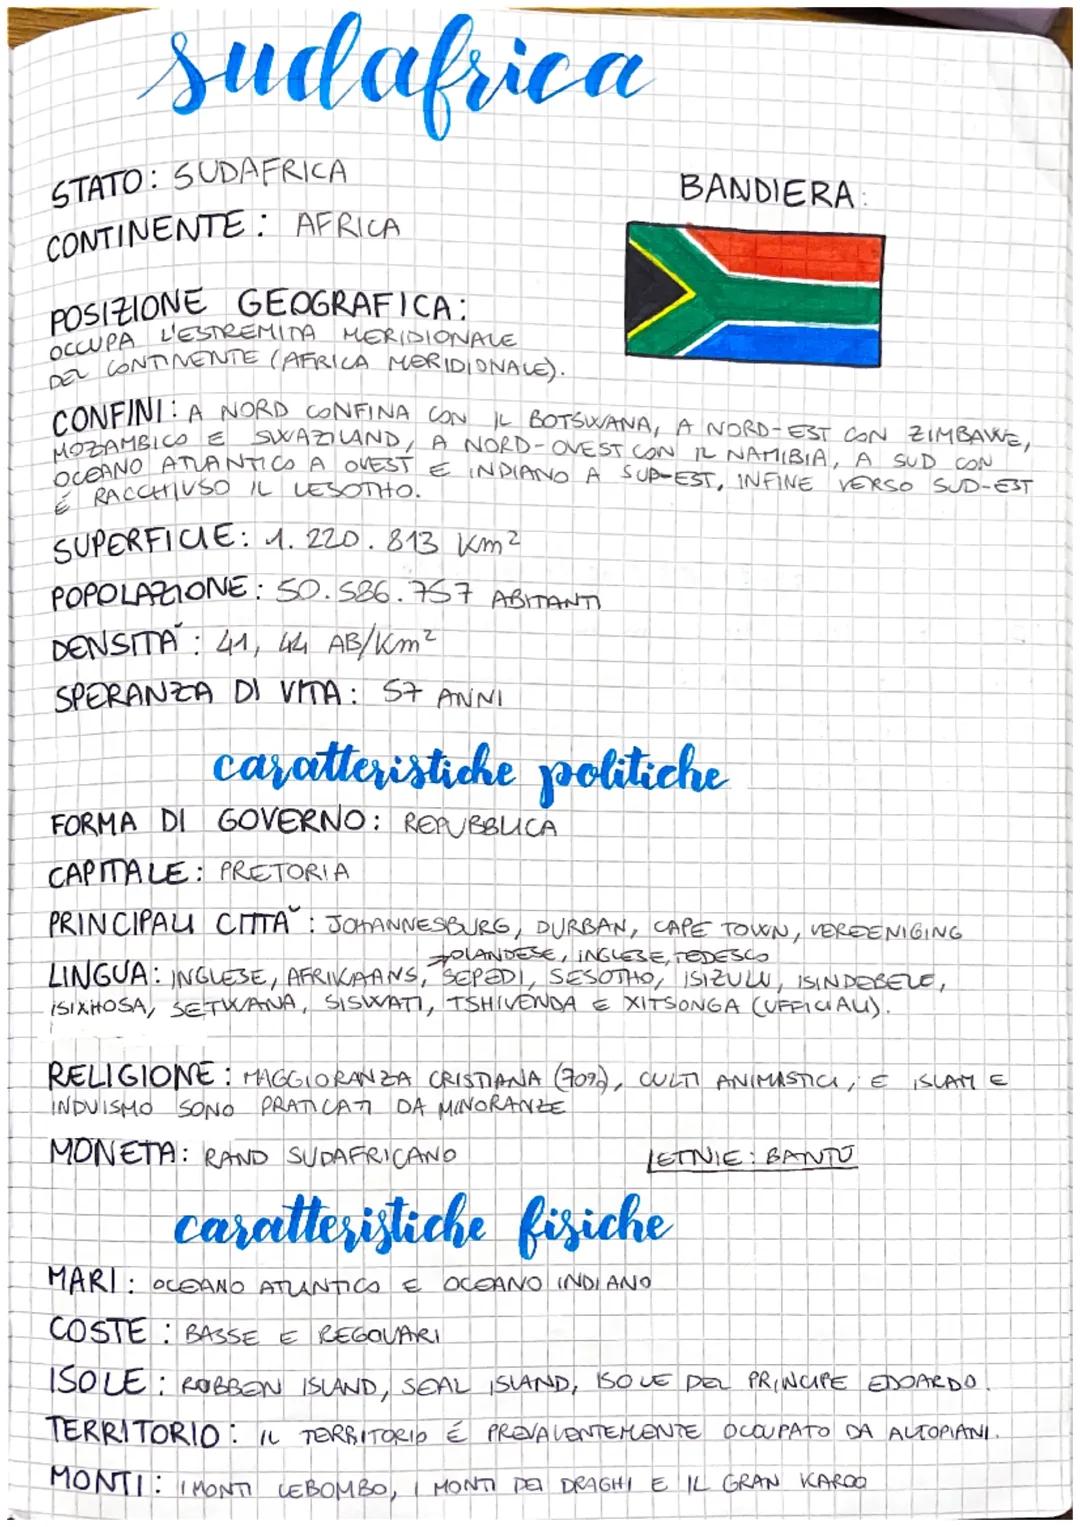 sudafrica
STATO: SUDAFRICA
BANDIERA:
CONTINENTE: AFRICA
POSIZIONE GEOGRAFICA:
OCCUPA L'ESTREMITA MERIDIONALE
DEL CONTINENTE (AFRICA MERIDIONALE).
CONFINI: A NORD CONFINA CON IL BOTSWANA, A NORD-EST CON ZIMBAWE,
MOZAMBICO E SWAZILAND, A NORD-OVEST CON IL NAMIBIA, A SUD CON
OCEANO ATLANTICO A OVEST E INDIANO A SUD-EST, INFINE VERSO SUD-EST
É RACCHIUSO IL LESOTHO.
SUPERFICIE: 1.220.813 Km²
POPOLAZIONE: 50.586.757 ABITANTI
DENSITÀ: 41,44 AB/Km²
SPERANZA DI VITA: 57 ANNI
caratteristiche politiche
FORMA DI GOVERNO: REPUBBLICA
CAPITALE: PRETORIA
PRINCIPALI CITTÀ: JOHANNESBURG, DURBAN, CAPE TOWN, VEREENIGING
→OLANDESE, INGLESE, TEDESCO
LINGUA: INGLESE, AFRIKAANS, SEPEDI, SESOTHO, ISIZULU, ISINDEBELE,
ISIXHOSA, SETWANA, SISWATI, TSHIVENDA E XITSONGA (UFFICIALI).
RELIGIONE: MAGGIORANZA CRISTIANA (70%), CULTI ANIMASTICI, E ISLAM E
INDUISMO SONO PRATICATI DA MINORANZE
MONETA: RAND SUDAFRICANO
ETNIE: BANTÙ
caratteristiche fisiche
MARI: OCEANO ATLANTICO E OCEANO INDIANO
COSTE: BASSE E REGOLARI
ISOLE: ROBBEN ISLAND, SEAL ISLAND, ISOLE DEL PRINCIPE EDOARDO.
TERRITORIO: IL TERRITORIO É PREVALENTEMENTE OCCUPATO DA ALTOPIANI.
MONTI: I MONTI LEBOMBO, I MONTI DEI DRAGHI E IL GRAN KAROO